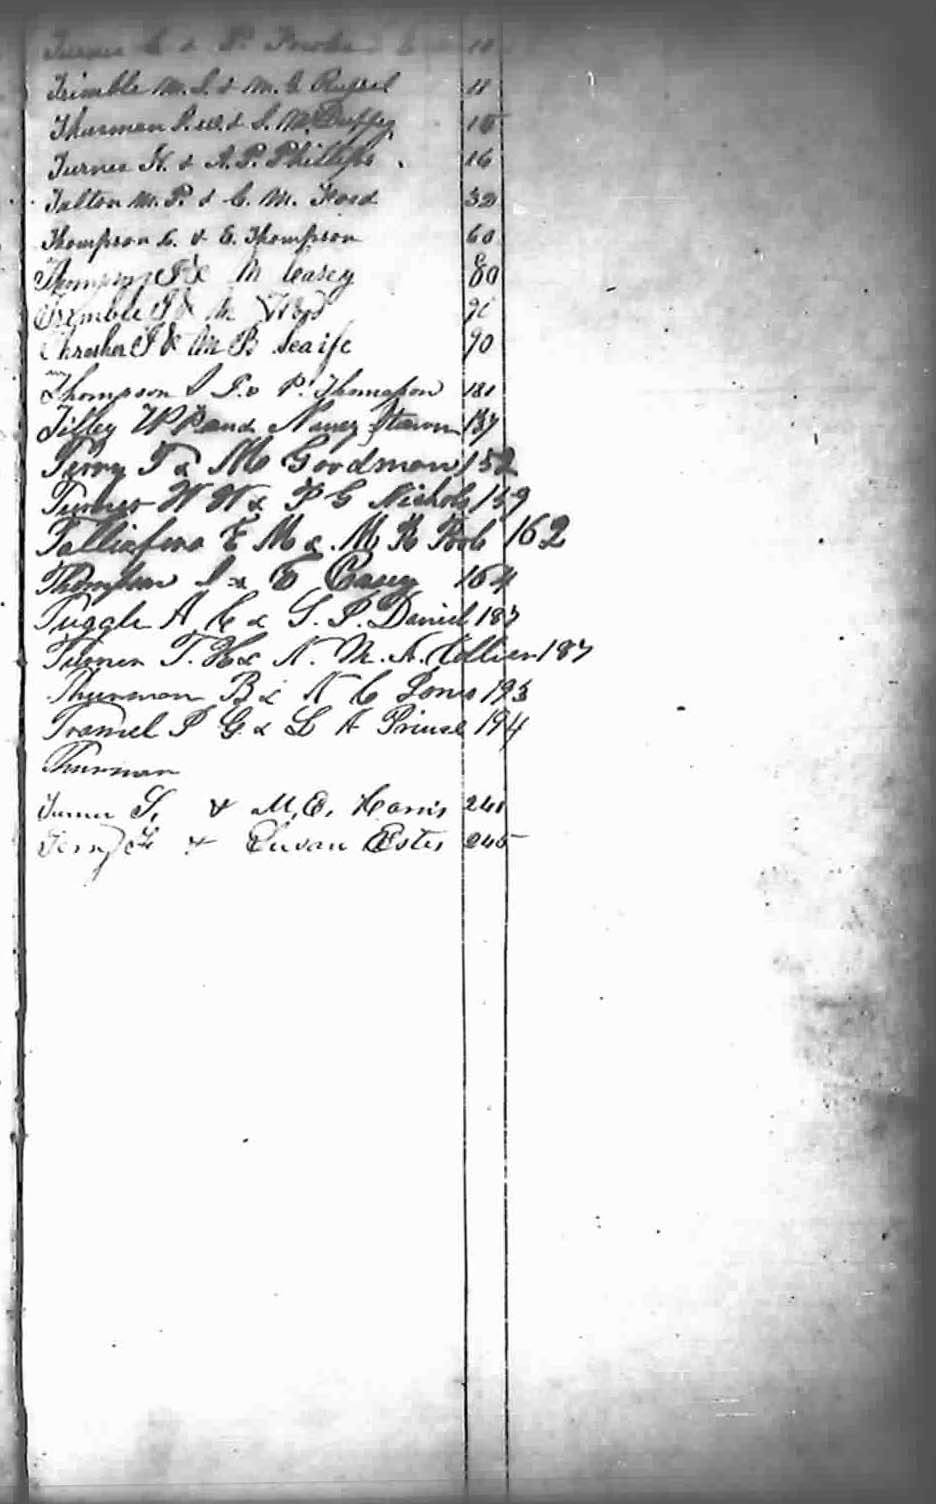 Turner & P.
Trimble M. S. & M. J. Russel 11
Thurman & S. M. Duffey 15
Turner H. & A. P. Phillips 16
Talton M. P. & C. M. Ford 32
Thompson L. & E. Thompson 60
Thompson J & M Casey 80
Tremble J & M Wood
Thrasher J & M B Scaife 90
Thompson J. & P. Thomason 181
Tilley W P and Nancy Stawn 137
Terry T & M Goodman 152
Turner W W & P G Nichols 159
Talliafero E M & M H Pool 162
Thompson J & E Casey 164
Tuggle A C & S. P. Daniel 187
Turner T. H & N. M. A. Collier 187
Thurman B & N C Jones 193
Tramel P G & L A Prince 194
Thurman
Turner S. & M. E. Harris 241
Terry & Susan Estes 245